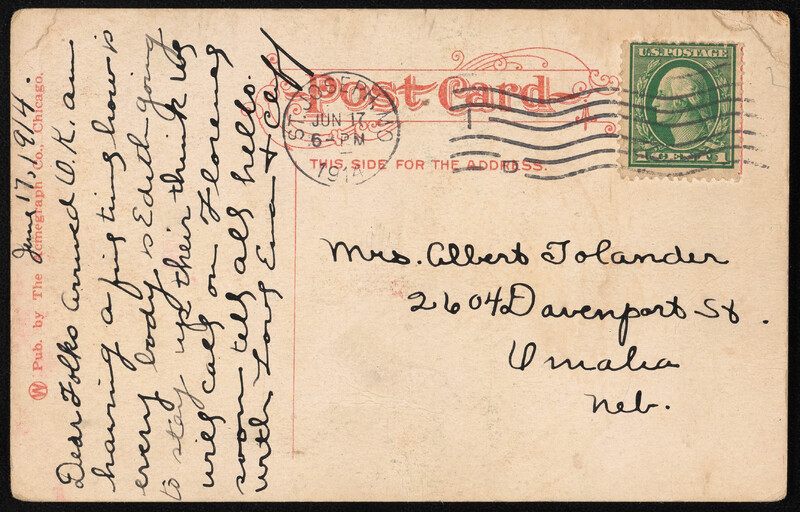 June 17, 1914.
Dear Folks Arrived O.K. am
having a fine time how is
every body is Edith going
to stay up their think we
will call on Florence
soon tell all hello.
with Love Ema +
Post Card
THIS SIDE FOR THE ADDRESS.
ST. JOSEPH, MO
JUN 17
6-PM
1914
U.S. POSTAGE
1 CENT 1
Mrs. Albert Tolander
2604 Davenport St.
Omaha
Neb.
W Pub. by The Acmegraph Co., Chicago.